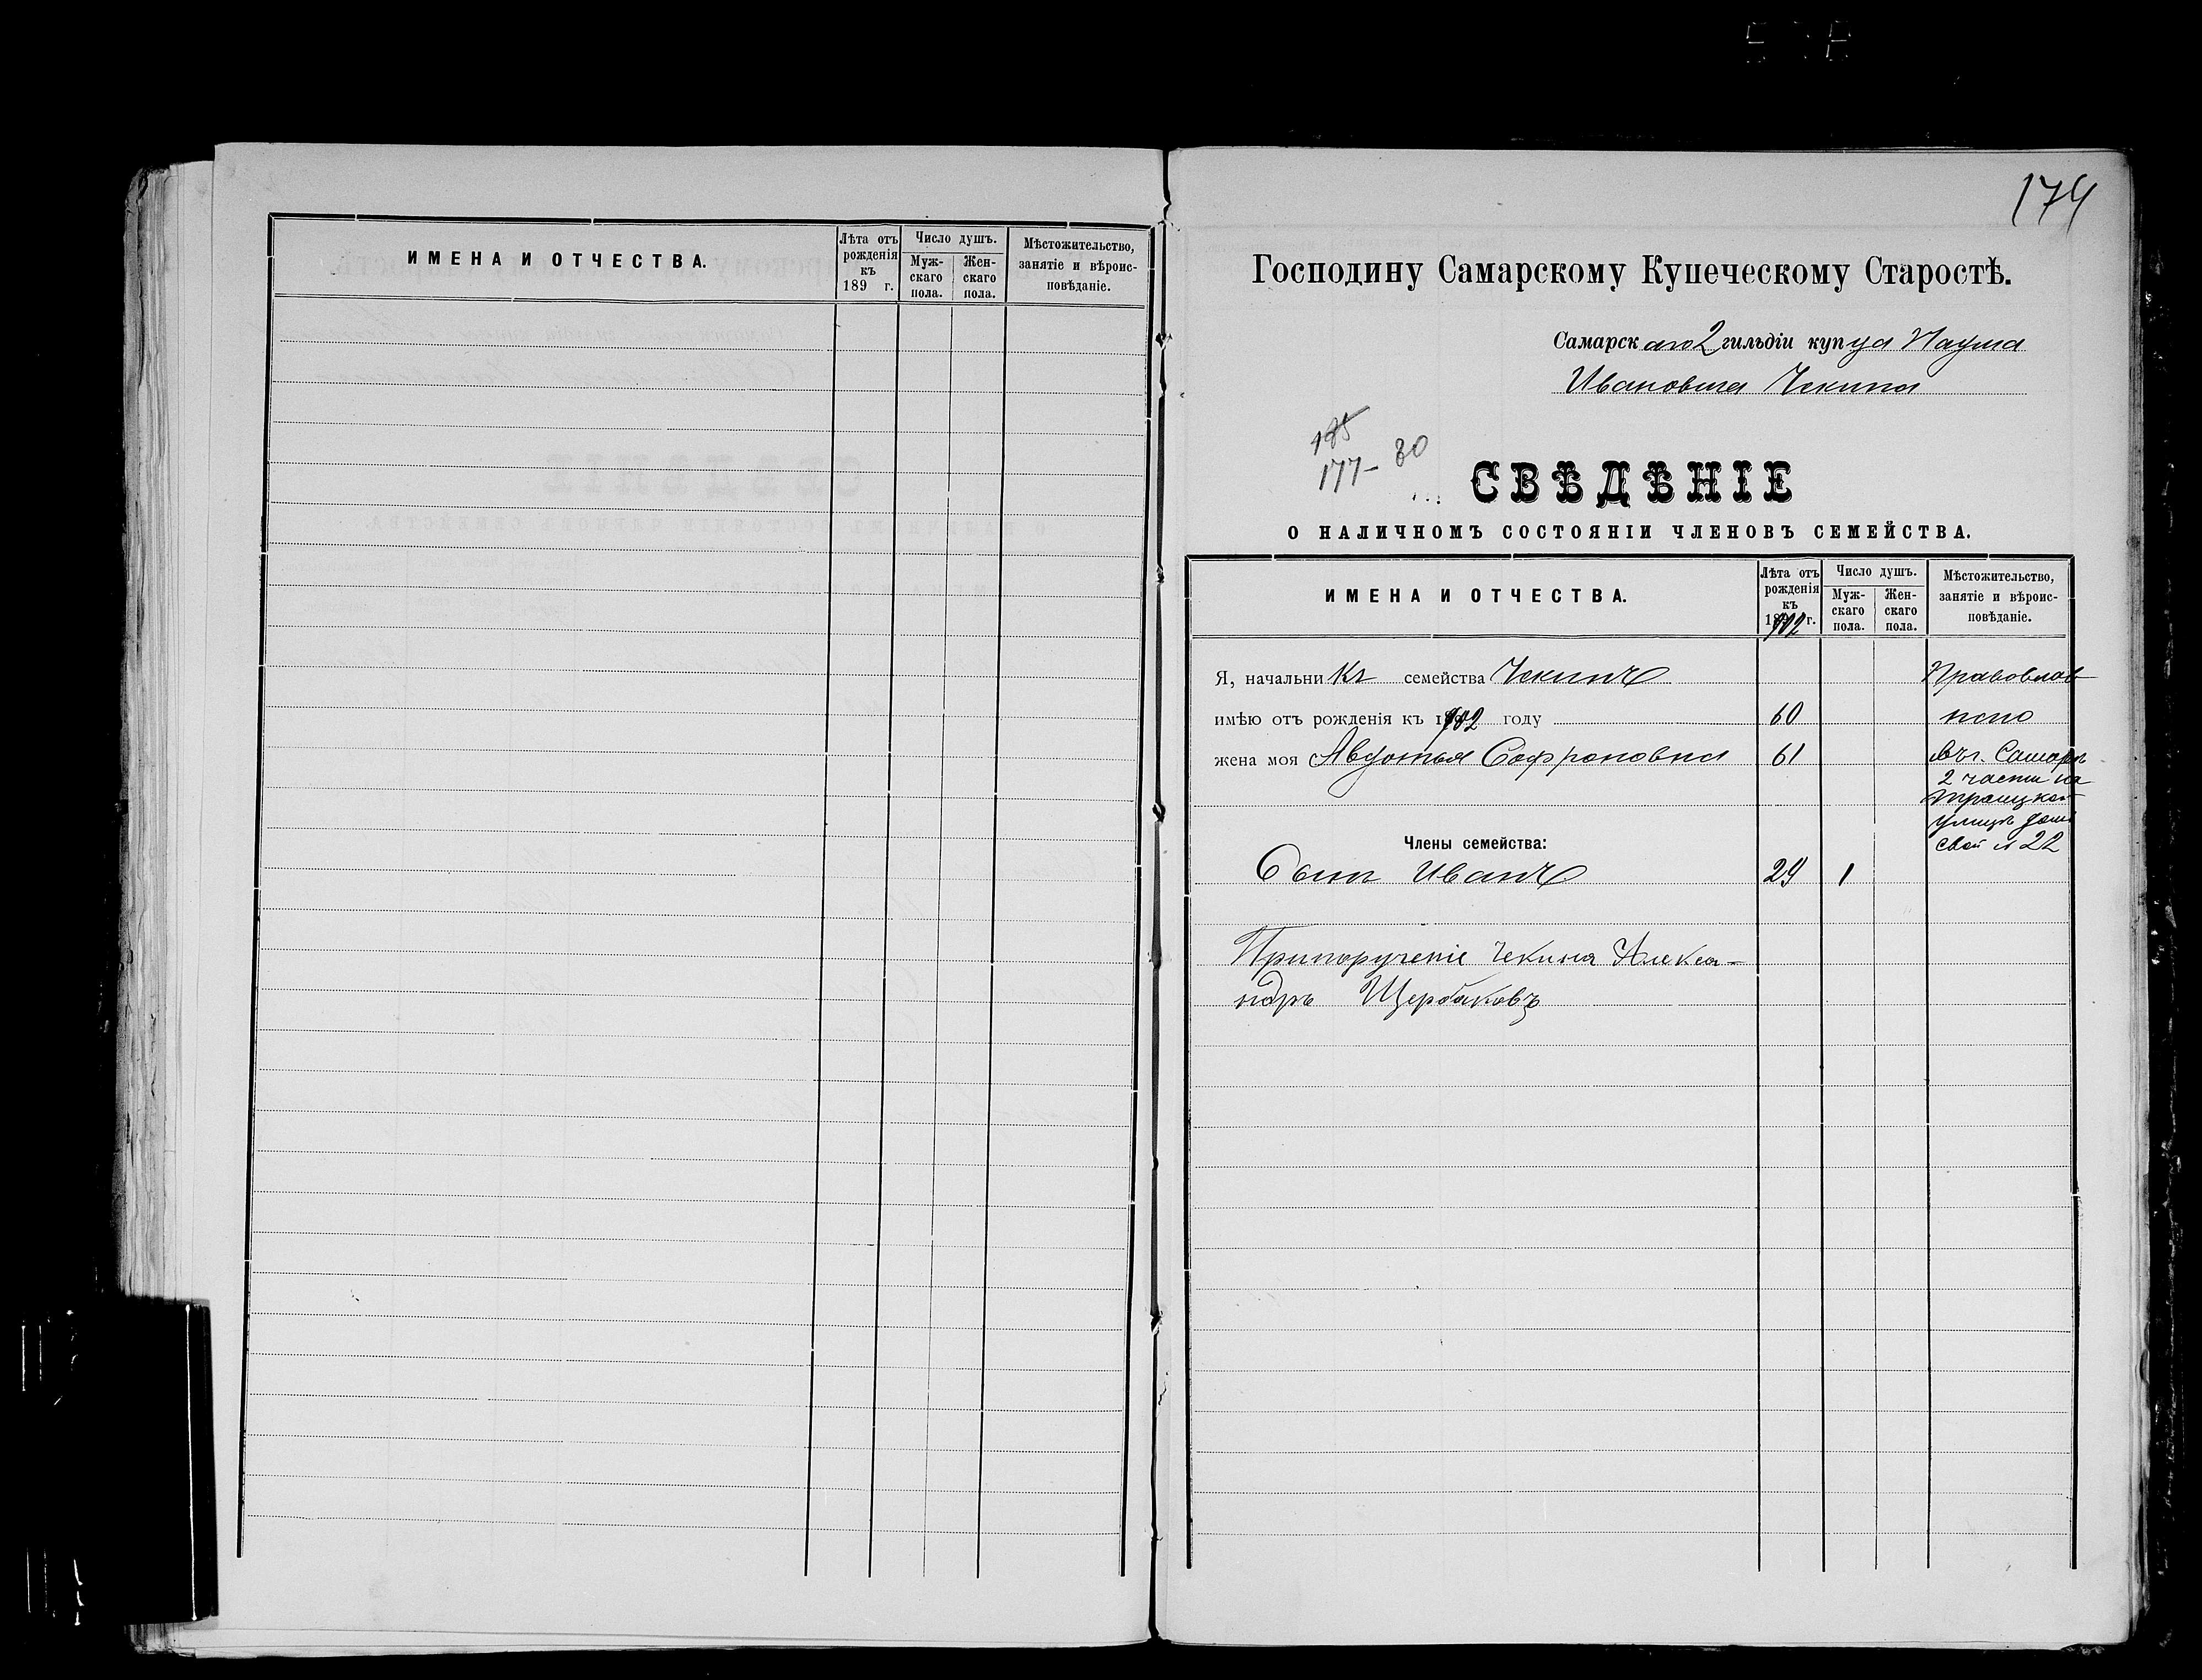 ИМЕНА И ОТЧЕСТВА.
Лѣта отъ рожденія къ 189 г.
Число душъ.
Мужскаго пола.
Женскаго пола.
Мѣстожительство, занятіе и вѣроисповѣданіе.
174
Господину Самарскому Купеческому Старостѣ.
Самарскаго 2 гильдіи купца Наума
Ивановича Чекина
185
177-80
СВѢДѢНІЕ
О НАЛИЧНОМЪ СОСТОЯНІИ ЧЛЕНОВЪ СЕМЕЙСТВА.
ИМЕНА И ОТЧЕСТВА.
Лѣта отъ
рожденія
къ
1902 г.
Число душъ.
Муж-
скаго
пола.
Жен-
скаго
пола.
Мѣстожительство,
занятіе и вѣроис-
повѣданіе.
Я, начальникъ семейства Чекинъ Православ
имѣю отъ рожденія къ 1902 году 60 наго
жена моя Авдотья Софроновна 61 въ г. Самарѣ
2 части на
Троицкой
улицѣ домъ
свой № 22
Члены семейства:
Сынъ Иванъ 29 1
Припорученіе Чекина Алекса-
ндръ Щербаковъ